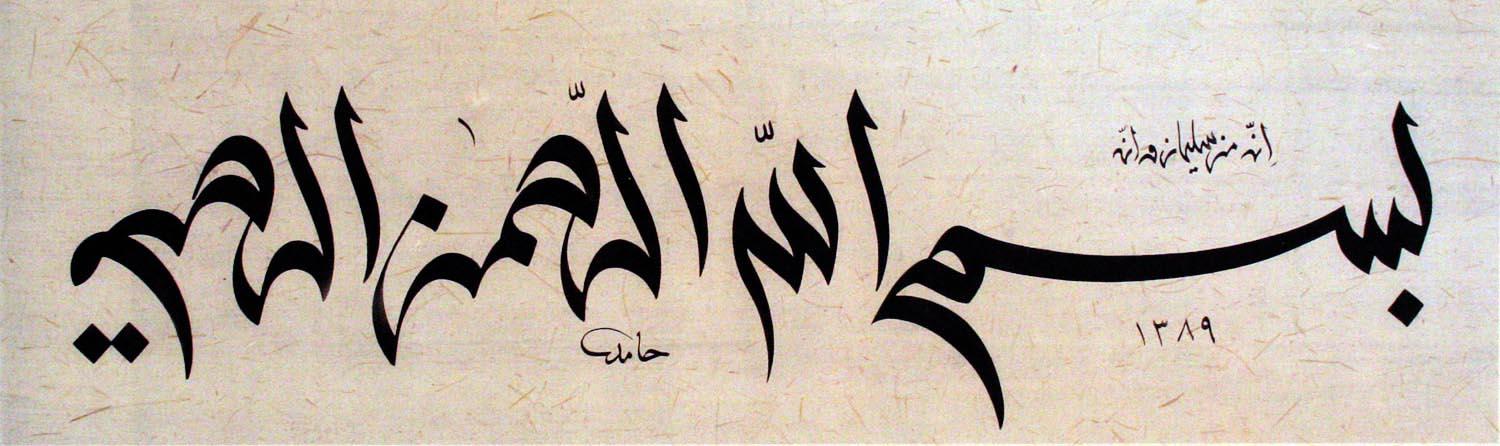 إنّه من سليمان وانّه
بسم اللّه الرّحمن الرحيم
١٣٨٩
حامد